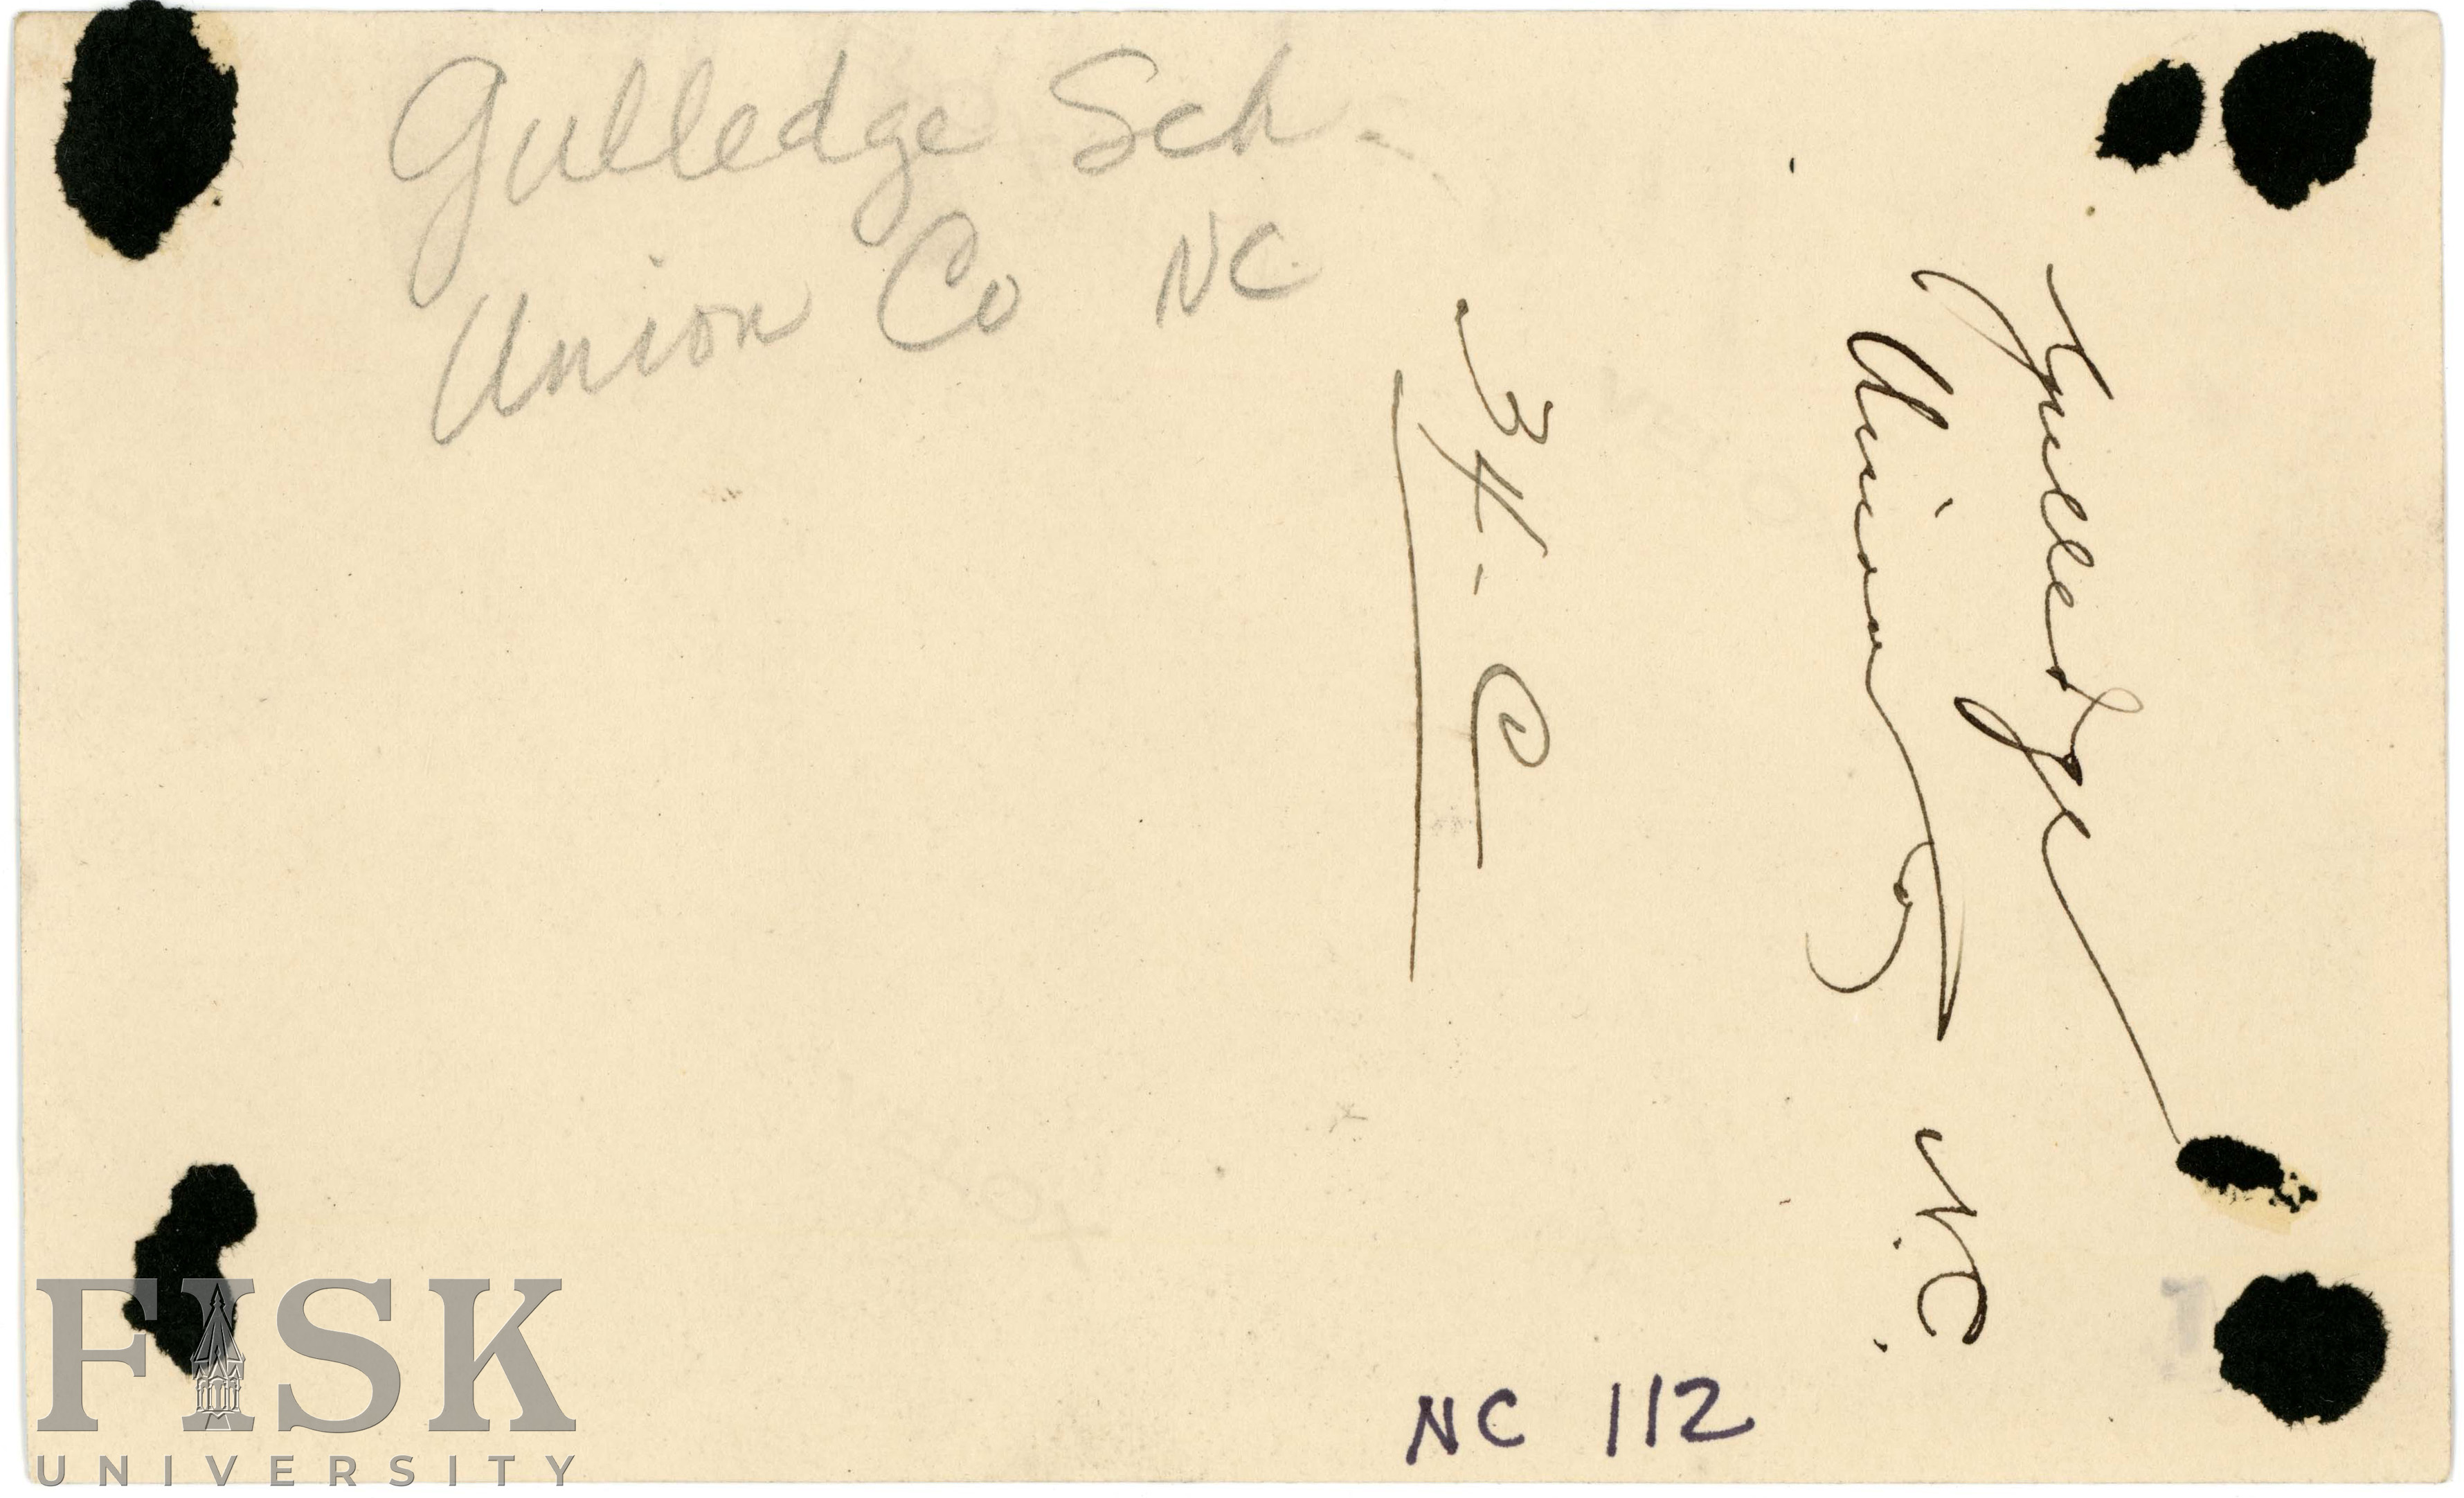 Gulledge Sch.
Union Co NC
Gulledge
Union Co, N.C.
34-C
NC 112
FISK
UNIVERSITY